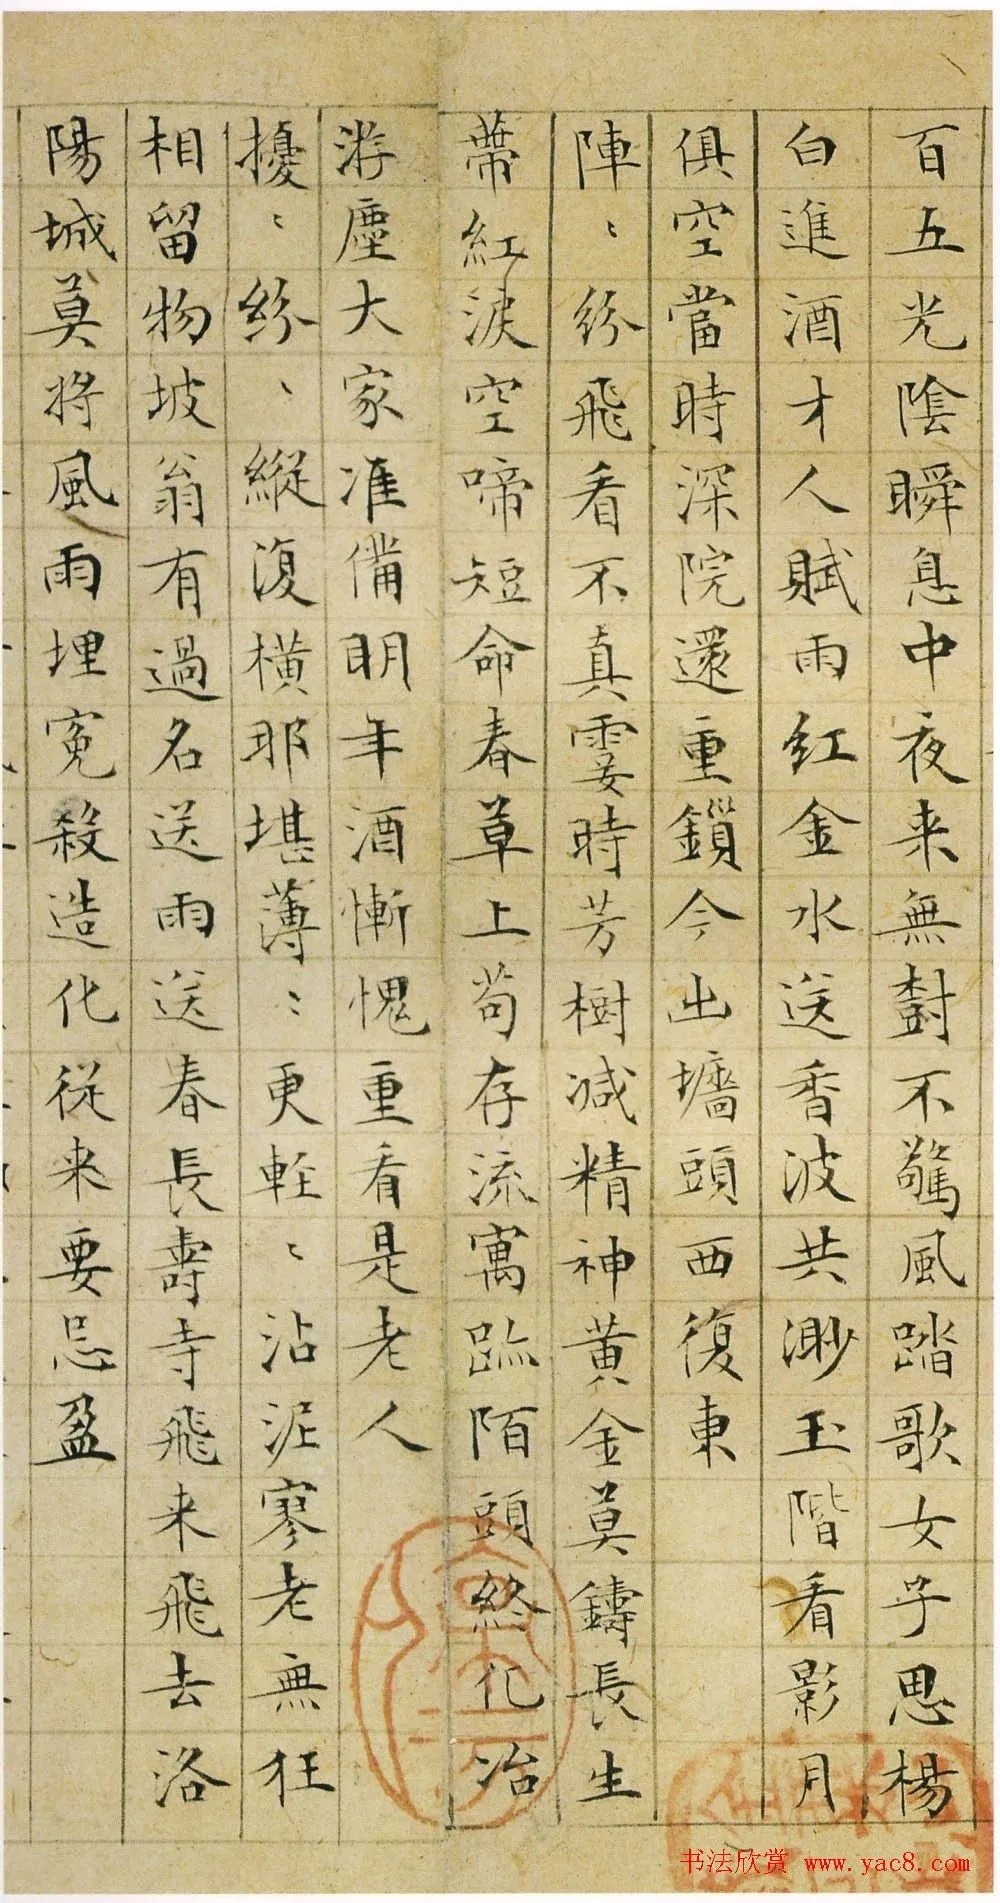 百五光陰瞬息中夜来無對不驚風踏歌女子思楊
白進酒才人賦雨紅金水送香波共渺玉階看影月
俱空當時深院還重鎖今出墻頭西復東
陣〻紛飛看不真霎時芳樹減精神黄金莫鑄長生
蒂紅淚空啼短命春草上苟存流寓跡陌頭終化冶
游塵大家准備明年酒慚愧重看是老人
擾〻紛〻縱復橫那堪薄〻更輕〻沾泥寥老無狂
相留物坡翁有過名送雨送春長壽寺飛来飛去洛
陽城莫将風雨埋寃殺造化從来要忌盈
书法欣赏 www.yac8.com